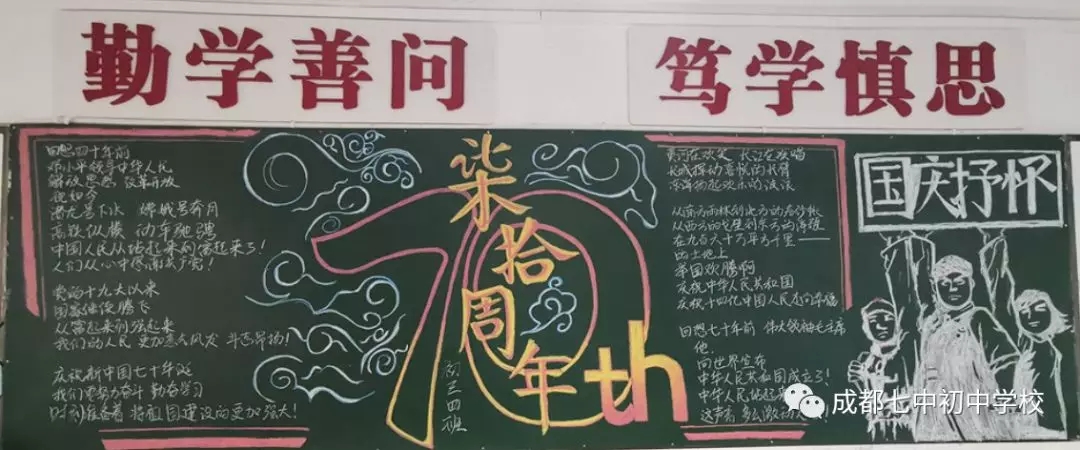 勤学善问
笃学慎思
回想四十年前
邓小平领导中华人民
解放思想 改革开放
看如今
潜龙号下水 嫦娥号奔月
高铁似箭 动车驰骋
中国人民从站起来到富起来了!
人们从心中感谢共产党!
党的十九大以来
国家继续腾飞
从富起来到强起来
我们的人民 更加意气风发 斗志昂扬!
庆祝新中国七十年诞
我们要努力奋斗 勤奋学习
时刻准备着 将祖国建设的更加强大!
柒拾周年
70th
初三四班
黄河在欢笑 长江在欢唱
长城挥动喜悦的长臂
东海扬起欢乐的波浪
从南方雨林到北方的
从西方的 到东方的海隅
在九百六十万平方千里——
的土地上
举国欢腾啊
庆祝中华人民共和国
庆祝十四亿中国人民走向幸福
回想七十年前 伟大领袖毛主席
他,
向世界宣布
中华人民共和国成立了!
中华人民站起来
这声音 多么激动
国庆抒怀
成都七中初中学校